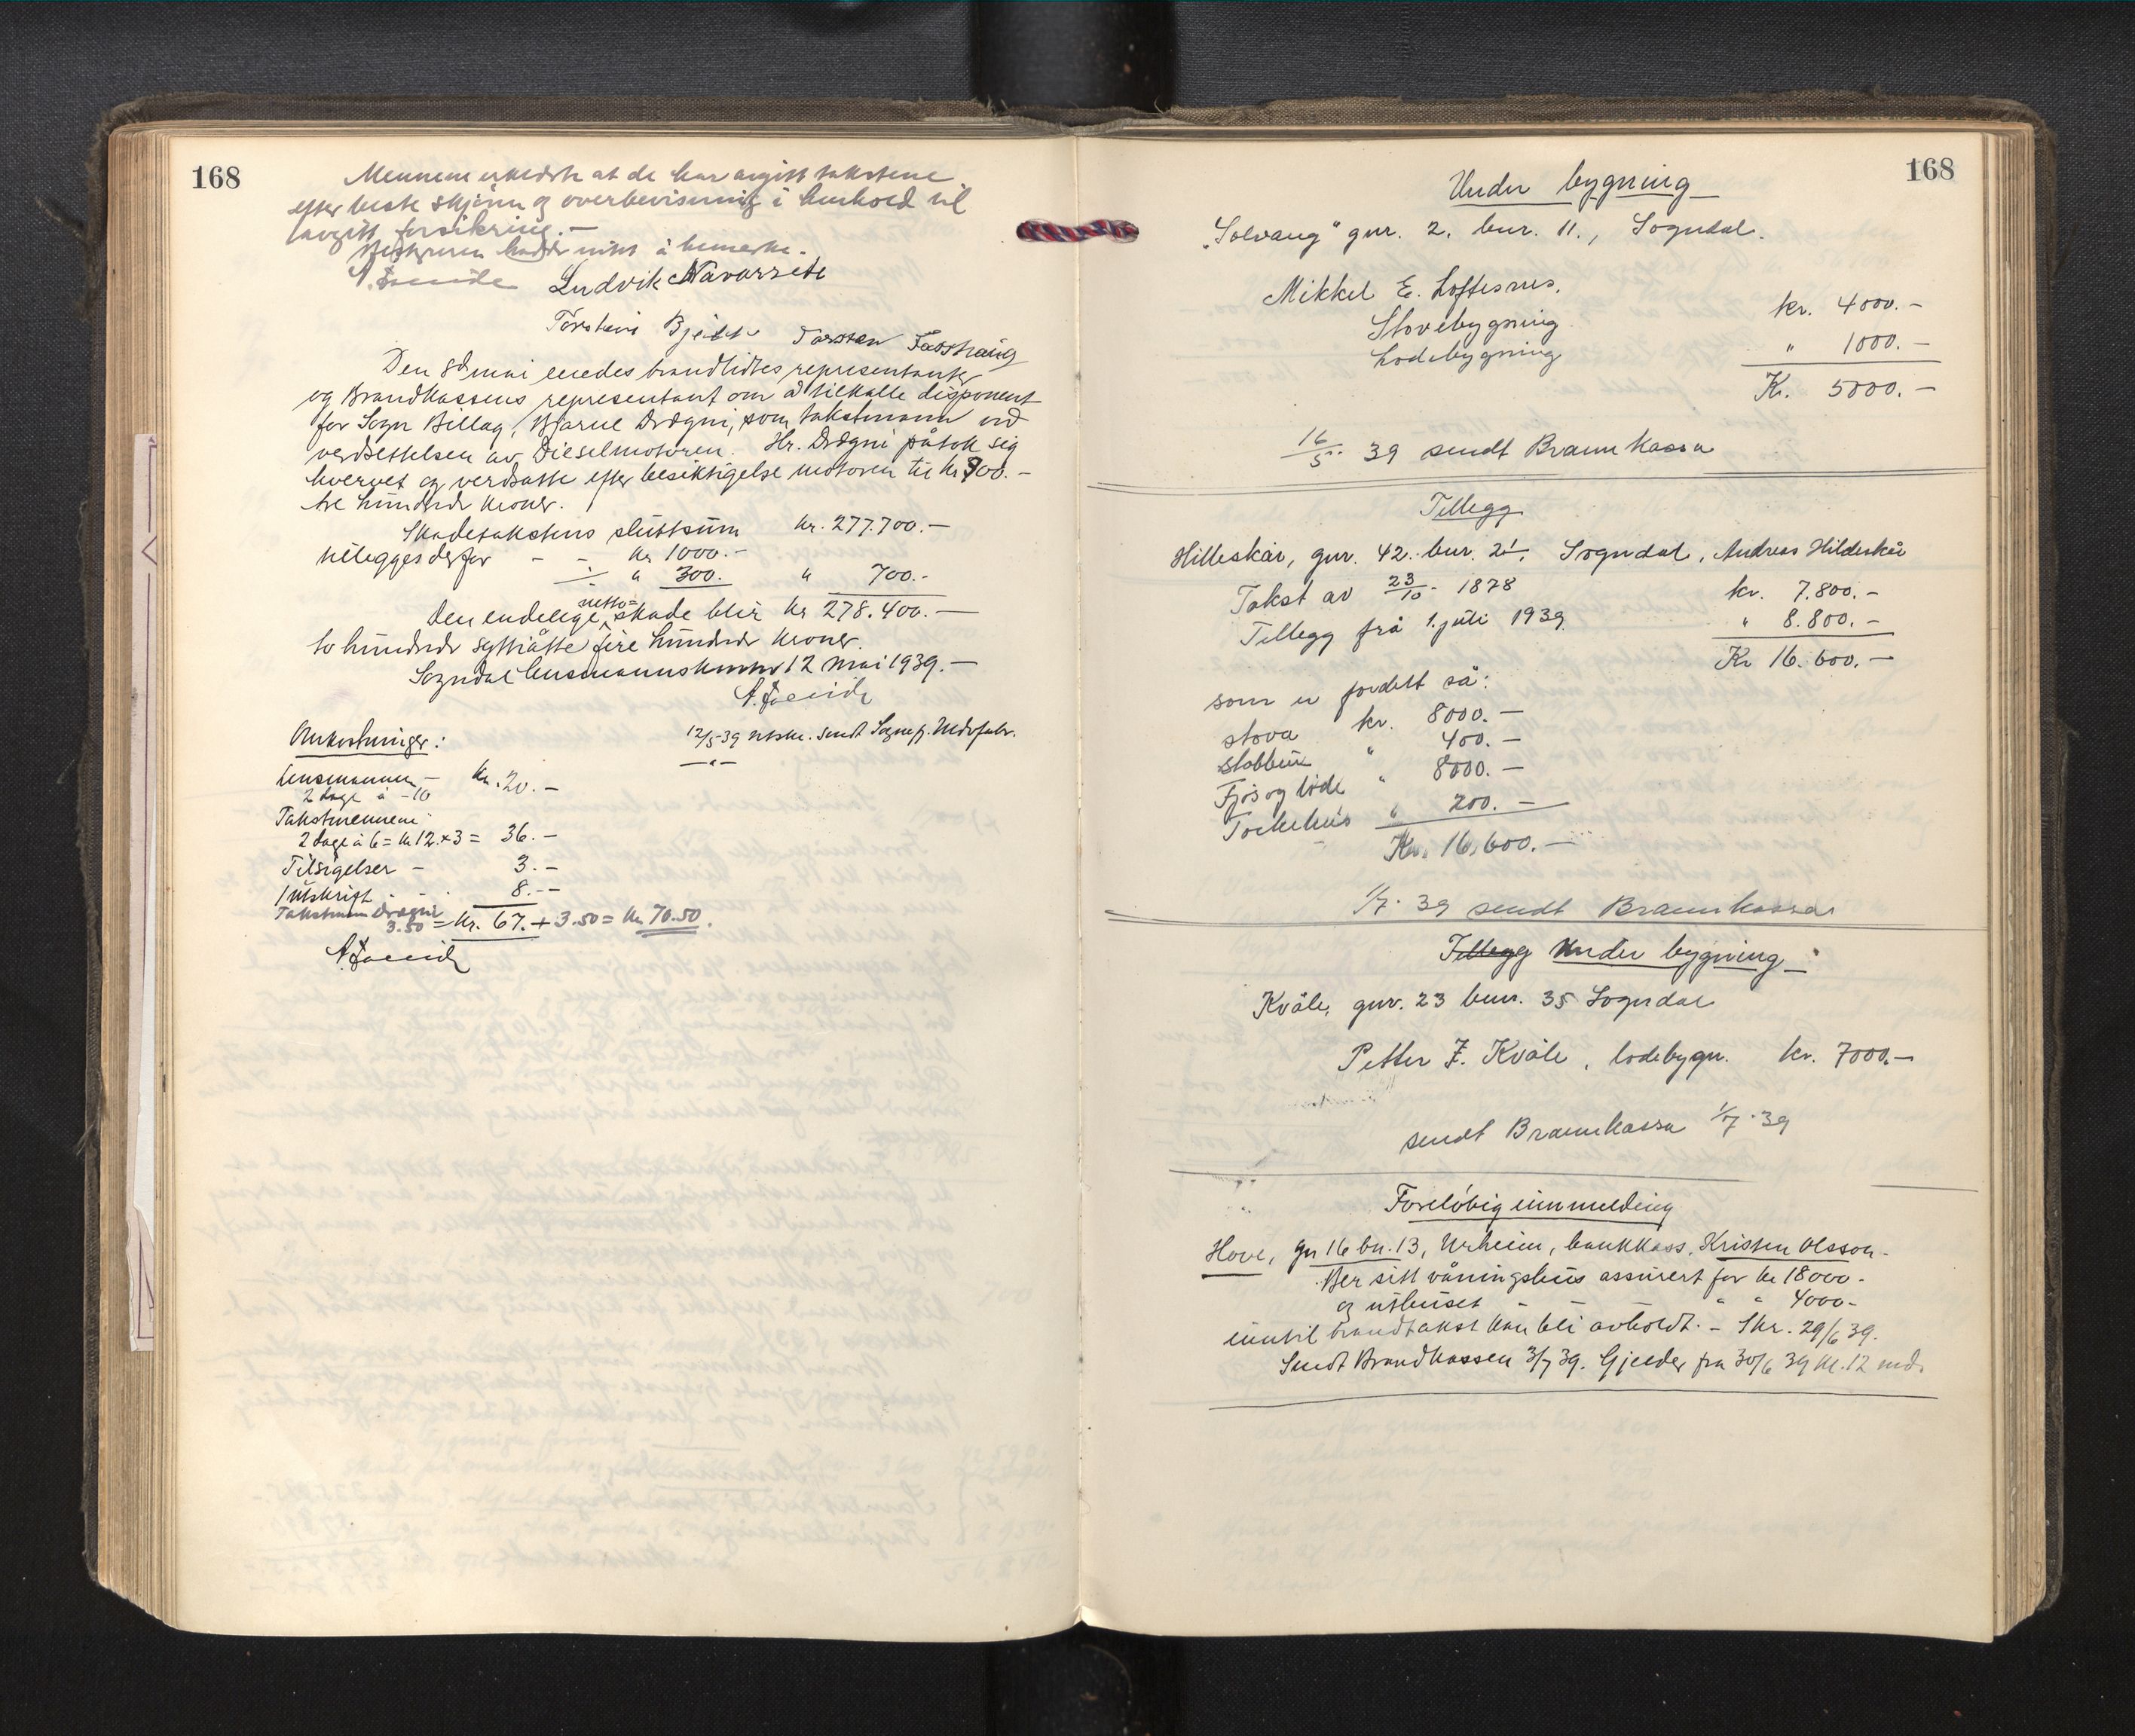 168
Mennene erklærte at de har avgitt takstene
efter beste skjønn og overbevisning i henhold til
avgitt forsikring. —
hadde intet å bemerke.
Ludvik Navarsete
Torstein Bjelde Torsten Fardthaug
Den 8de mai enedes brandlidtes representanter
og Brandkassens representant om å tilkalle disponent
for Sogn Billag, Bjarne Drægni, som takstmann ved
verdsettelsen av Dieselmotoren. Hr. Drægni påtok sig
hvervet og verdsatte efter besiktigelse motoren til kr 300. —
tre hundrede kroner.
Skadetakstens sluttsum kr. 277.700. —
tillegges derfor - - kr 1000. —
" 300. " 700. -
Den endelige netto= skade blir kr 278.400. —
to hundrede syttiåtte fire hundrede kroner.
Sogndal lensmannskontor 12 mai 1939. —
12/5-39 utskr. sendt Sogneprj. Nedrefabr.
— " —
Omkostninger:
Lensmannen — kr. 20. —
2 dage à -10
Takstmennene
2 dage à 6 = kr 12. x 3 = 36. —
Tilsigelser — 3. —
1 utskrift - - - 8. --
Takstmann Drægni
3.50 = kr. 67. + 3.50 = kr 70.50.
168
Under bygning
„Solvang" gnr. 2. bnr. 11., Sogndal.
Mikkel E. Loftesnes.
Stovebygning kr. 4000. —
Lodebygning " 1000. —
Kr. 5000. —
16/5. 39 sendt Brannkassa
Tillegg
Hilleskår, gnr. 42. bnr. 2/1. Sogndal, Andreas Hildeskår
Takst av 23/10 - 1878 kr. 7.800. —
Tillegg frå 1. juli 1939 " 8.800. —
Kr 16.600. —
som er fordelt så:
stova kr. 8000. —
stabbur " 400. —
Fjos og løde " 8000. —
Torkehus " 200. —
Kr. 16.600. —
1/7. 39 sendt Brannkassa
Tillegg Under bygning
Kvåle, gnr. 23 bnr. 35 Sogndal
Petter J. Kvåle, lodebygn. kr. 7000. —
sendt Brannkassa 1/7. 39
Foreløbig innmelding
Hove, gn 16 bn. 13, Urheim, bankkass. Kristen Olsson -
Ber sitt våningshus assurert for kr 18000 -
og uthuset - - " " 4000 -
inntil brandtakst kan bli avholdt. - Skr. 29/6 39.
Sendt Brandkassen 3/7 39. Gjelder fra 30/6 39 kl. 12 md.